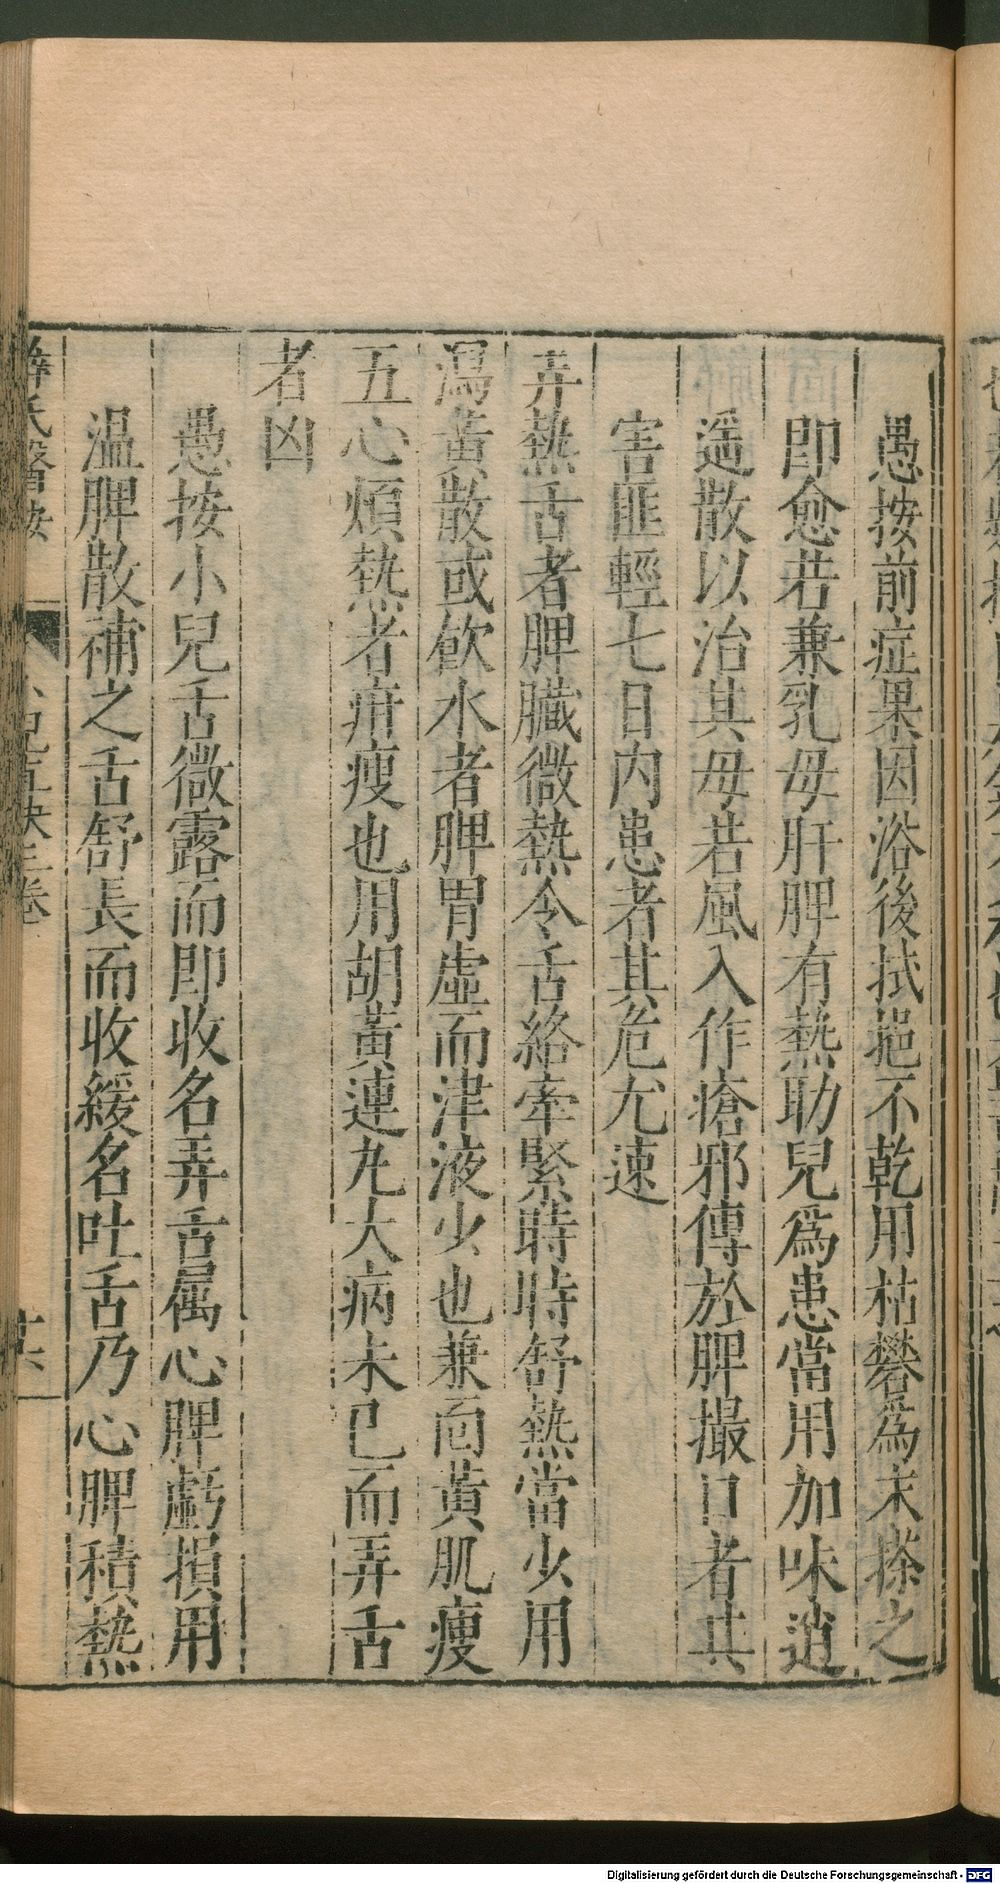 愚按前症果因浴後拭挹不乾用枯礬為末摻之
即愈若兼乳母肝脾有熱助兒為患當用加味逍
遥散以治其母若風入作瘡邪傳於脾撮口者其
害匪輕七日內患者其危尤速
弄熱舌者脾臟微熱令舌絡牽緊時時舒熱當少用
瀉黃散或飲水者脾胃虛而津液少也兼面黃肌瘦
五心煩熱者疳瘦也用胡黃連丸大病未已而弄舌
者凶
愚按小兒舌微露而即收名弄舌属心脾虧損用
溫脾散補之舌舒長而收緩名吐舌乃心脾積熱
薛氏醫按
小兒直訣三卷
廿六
Digitalisierung gefördert durch die Deutsche Forschungsgemeinschaft - DFG